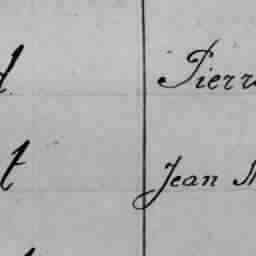 d Pierr
t Jean M